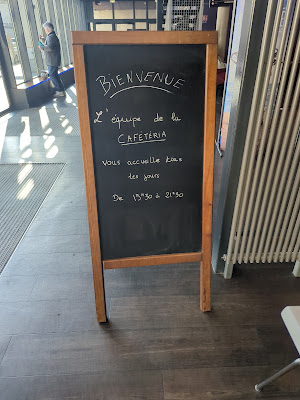 BIENVENUE
L'équipe de la
CAFÉTÉRIA
vous accueille tous
les jours
De 15h30 à 21h30